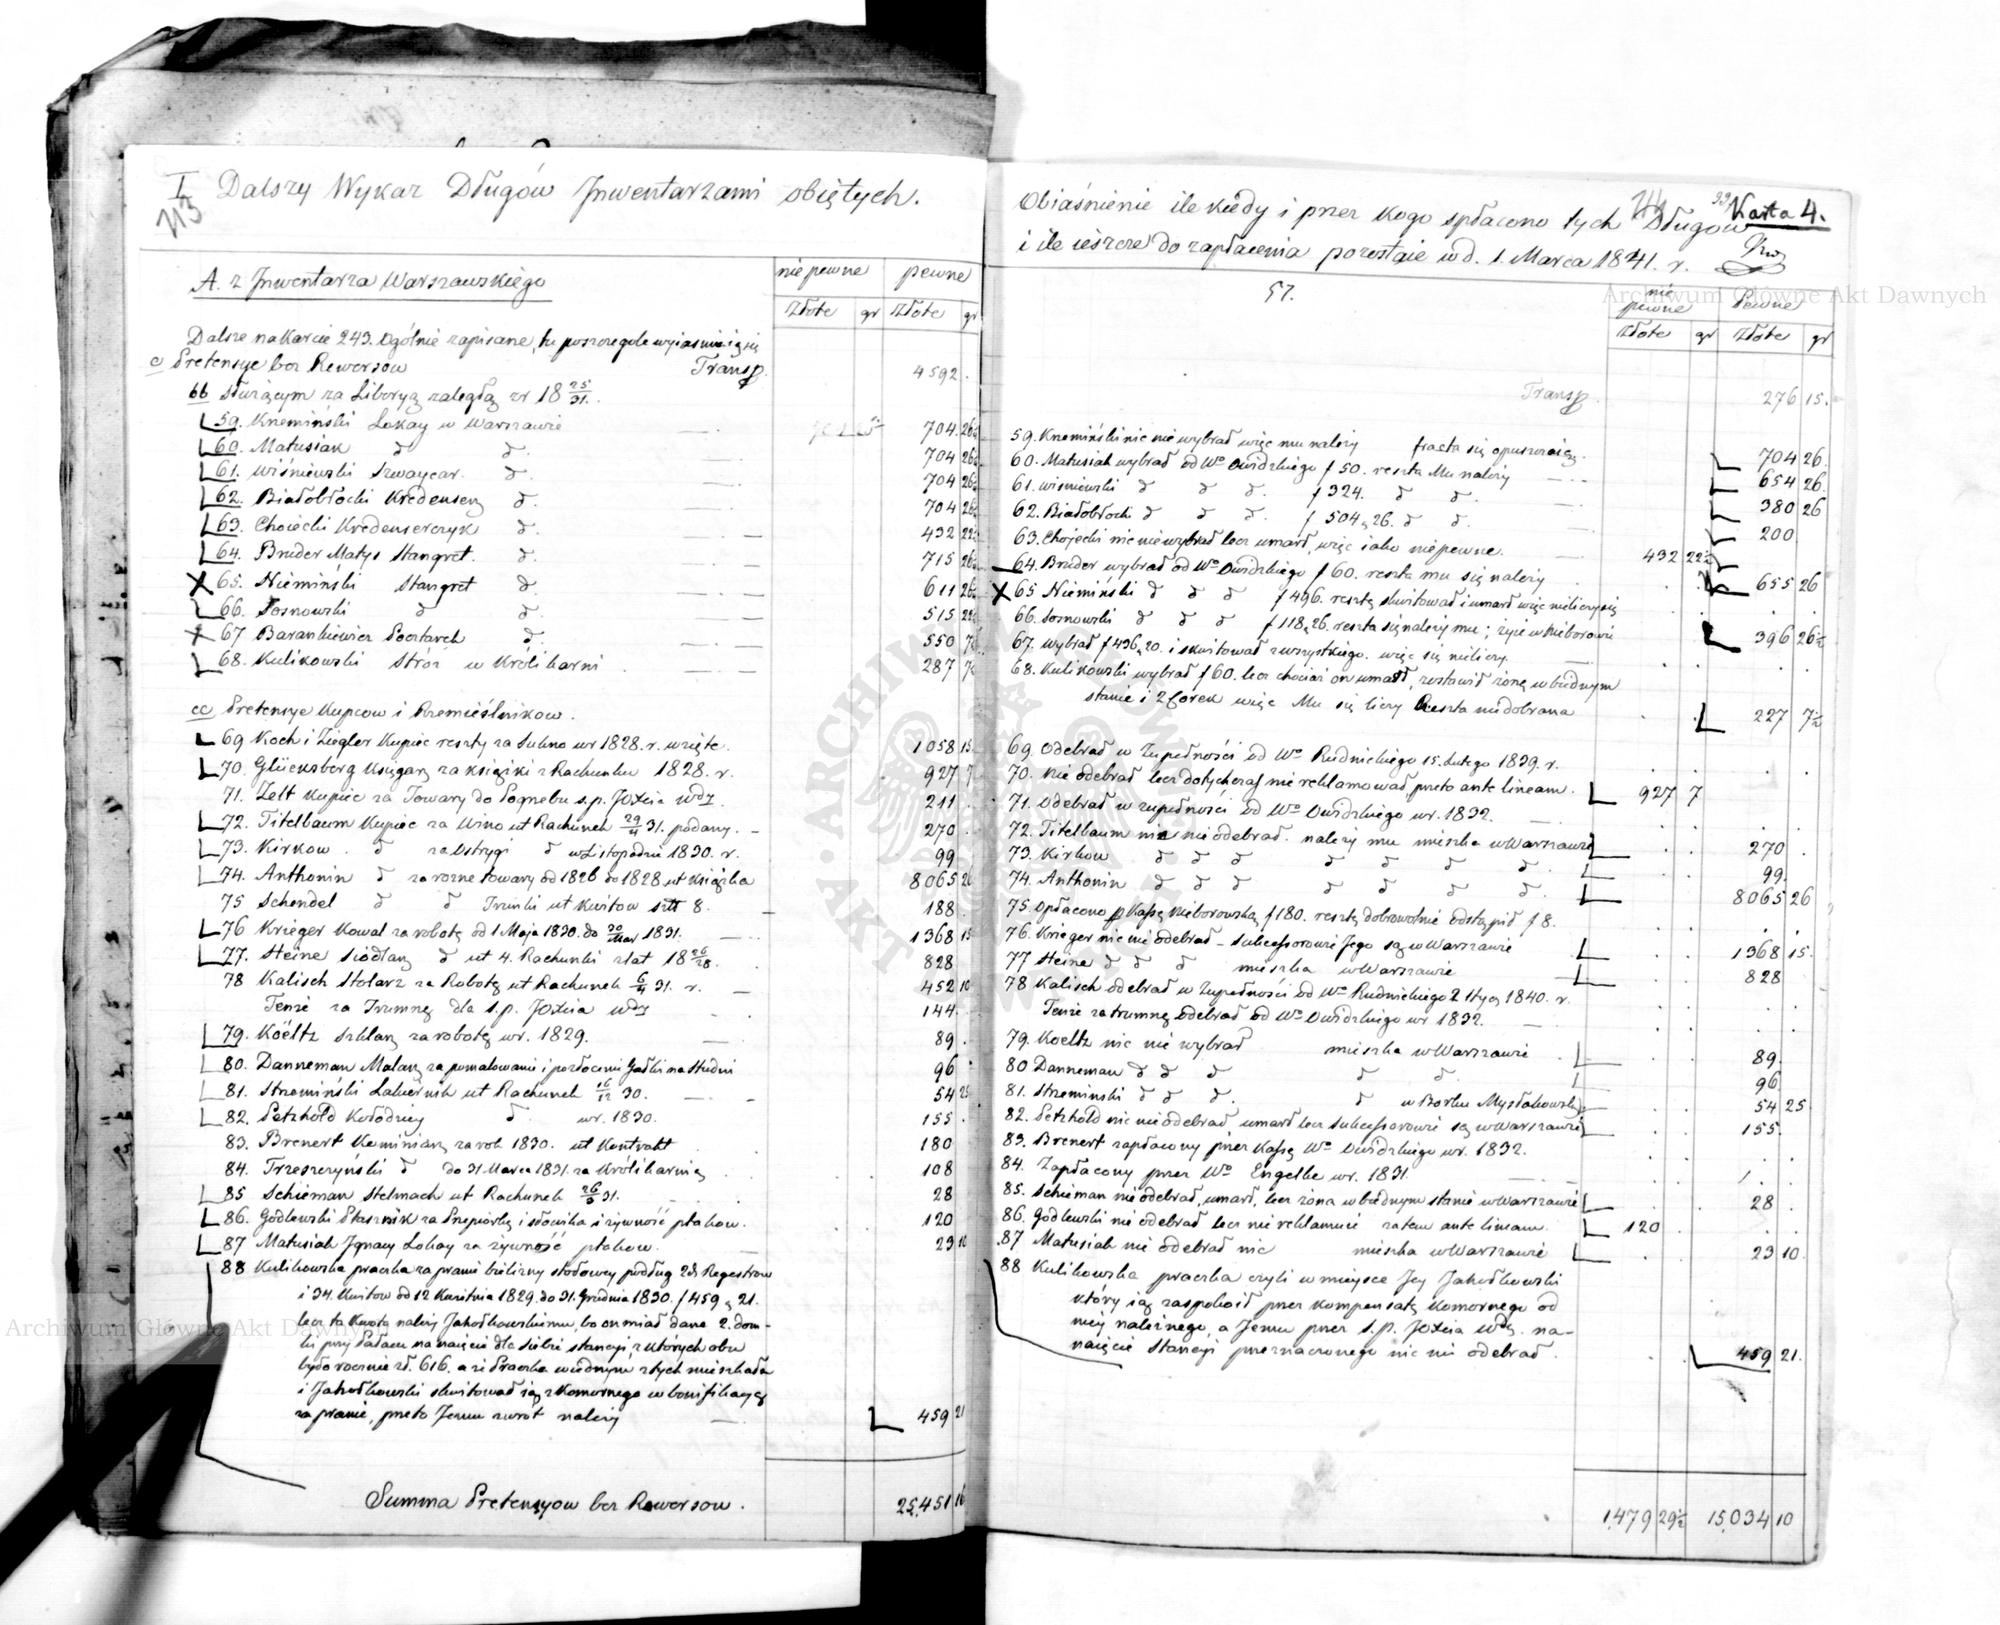 I. Dalszy Wykaz Długów Inwentarzami obiętych.
213
A. z Inwentarza Warszawskiego
nie pewne pewne
Złote gr Złote gr
Dalsze na karcie 243. ogólnie zapisane, tu poszczegule wyiaśniaią się
c Pretensye bez Rewersow Transp. 4592.
bb służącym za Liberyą zaległą zr 18 25/31.
59. Knemiński Lokay w Warszawie 704. 26
60. Matusiak d d. 704 26
61. Wiśniewski Szwaycar. d. 704 26
62. Białobłocki Kredenserz d. 704 26
63. Choiecki Kredenserczyk d. 432 22½
64. Bruder Matys Stangret. d. 715 26
65. Niemiński Stangret d. 611 26
66. Sosnowski d d. 515 22
67 Barankiewicz Pocztarek d. 550 7
68. Kulikowski Stróż w Królikarni 287 7
cc Pretensye Kupcow i Rzemieślnikow.
69 Koch i Ziegler Kupiec reszty za Sukno wr 1828. r. wzięte. 1058 15
70. Glücksberg Księgarz za książki z Rachunku 1828. r. 927 7
71. Zelt Kupiec za Towary do Pogrzebu s.p. JOXcia Wdy 211
72. Titelbaum Kupiec za Wino ut Rachunek 29/4 31. podany. 270
73. Kirkow d za Ostrygi d w Listopadzie 1830. r. 99
74. Anthonin d za rozne towary od 1826 do 1828 ut Książka 8065 26
75 Schendel d d Trunki ut Kwitow sztt 8. 188
76 Krieger Kowal za robotę od 1 Maja 1830. do 30/Mar 1831. 1368 15
77. Heine Siodlarz d ut 4. Rachunki z lat 18 26/28. 828
78 Kalisch Stolarz za Robotę ut Rachunek 6/4 31. r. 452 10
Tenże za Trumnę dla s.p. JOXcia Wdy 144.
79. Koëltz Szklarz za robotę wr. 1829. 89.
80. Danneman Malarz za pomalowanie i pozłocenie Gałki na Studni 96
81. Strzemiński Lakiernik ut Rachunek 16/12 30. 54 25
82. Petzhold Kołodziey d wr. 1830. 155.
83. Brenert Kominiarz za rok 1830. ut Kontrakt 180
84. Trzeszczyński d do 31 Marca 1831. za Królikarnią 108
85 Schieman Stelmach ut Rachunek 26/3 31. 28
86. Godlewski Ptasznik za Przepiorkę i słowika i żywność ptakow. 120
87 Matusiak Ignacy Lokay za żywność ptakow. 23 10
88 Kulikowska praczka za pranie bielizny stołowey podług 2ch Regestrow
i 34. Kwitow od 12 Kwietnia 1829. do 31. Grudnia 1830. f 459 g 21.
lecz ta Kwota należy Jakołkowskiemu, bo on miał dane 2. dom-
ki przy Pałacu na naięcie dla siebie stancyi, z których obu
było rocznie zł. 616. a że Praczka w iednym z tych mieszkała
i Jakołkowski skwitował ią z Komornego w bonifikacyą
za pranie, przeto Jemu zwrót należy 459 21
Summa Pretensyow bez Rewersow. 25,451 16
Obiaśnienie ile kiedy i przez kogo spłacono tych Długow
i ile ieszcze do zapłacenia pozostaie w d. 1. Marca 1841. r.
Karta 4.
57.
nie pewne Pewne
Złote gr Złote gr
Transp. 276 15.
59. Knemiński nic nie wybrał więc mu należy fracta się opuszczaią. 704 26.
60. Matusiak wybrał od Wo Owidzkiego f 50. reszta Mu należy 654 26.
61. Wisniewski d d d. f 324. d d. 380 26
62. Białobłocki d d d. f 504 g 26. d d. 200
63. Chojecki nic nie wybrał lecz umarł, więc iako niepewne. 432 22½
64. Bruder wybrał od Wo Owidzkiego f 60. reszta mu się należy 655 26
65 Niemiński d d d f 496. resztę skwitował i umarł więc nieliczy się
66. Sosnowski d d d f 118 g 26. reszta się należy mu; żyie w Nieborowie 396 26½
67. Wybrał f 436 g 20. i skwitował z wszystkiego. więc się nieliczy.
68. Kulikowski wybrał f 60. lecz chociaż on umarł, zostawił żonę w biednym
stanie i 2 Corek więc Mu się liczy Reszta niedobrana 227 7½
69. Odebrał w Zupełności od Wo Rudnickiego 15. Lutego 1839. r.
70. Nie odebrał lecz dotychczas nie reklamował, przeto ante lineam. 927 7
71. Odebrał w zupełności od Wo Owidzkiego wr. 1832.
72. Titelbaum nic nie odebrał. należy mu mieszka w Warszawie 270
73. Kirkow d d d d d d d. 99.
74. Anthonin d d d d d d d. 8065 26
75. Opłacono p Kassę Nieborowską f 180. resztę dobrowolnie odstąpił f 8.
76. Krieger nic nie odebrał - Sukcessorowie Jego są w Warszawie 1368 15.
77 Heine d d d mieszka w Warszawie 828
78 Kalisch odebrał w Zupełności od Wo Rudnickiego 2 Stycz 1840. r.
Tenże za trumnę odebrał od Wo Owidzkiego wr 1832.
79. Koeltz nic nie wybrał mieszka w Warszawie 89.
80 Danneman d d d d d. 96
81. Strzeminski d d d. d w Borku Mysłakowskim 54 25
82. Petzhold nic nie odebrał umarł lecz Sukcessorowie są w Warszawie 155.
83. Brenert zapłacony przez Kassę Wo Owidzkiego wr. 1832.
84. Zapłacony przez Wo Engelke wr. 1831.
85. Schieman nie odebrał, umarł, lecz żona w biednym stanie w Warszawie 28
86. Godlewski nie odebrał lecz nie reklamuie zatem ante lineam. 120
87 Matusiak nie odebrał nic mieszka w Warszawie 23 10.
88 Kulikowska praczka czyli w mieysce Jey Jakołkowski
który ią zaspokoił przez kompensatę komornego od
niey należnego, a Jemu przez s.p. JOXcia Wdę na-
naięcie Stancyi przeznaczonego nic nie odebrał. 459 21.
1,479 29½ 15,034 10
Archiwum Główne Akt Dawnych
Archiwum Główne Akt Dawnych